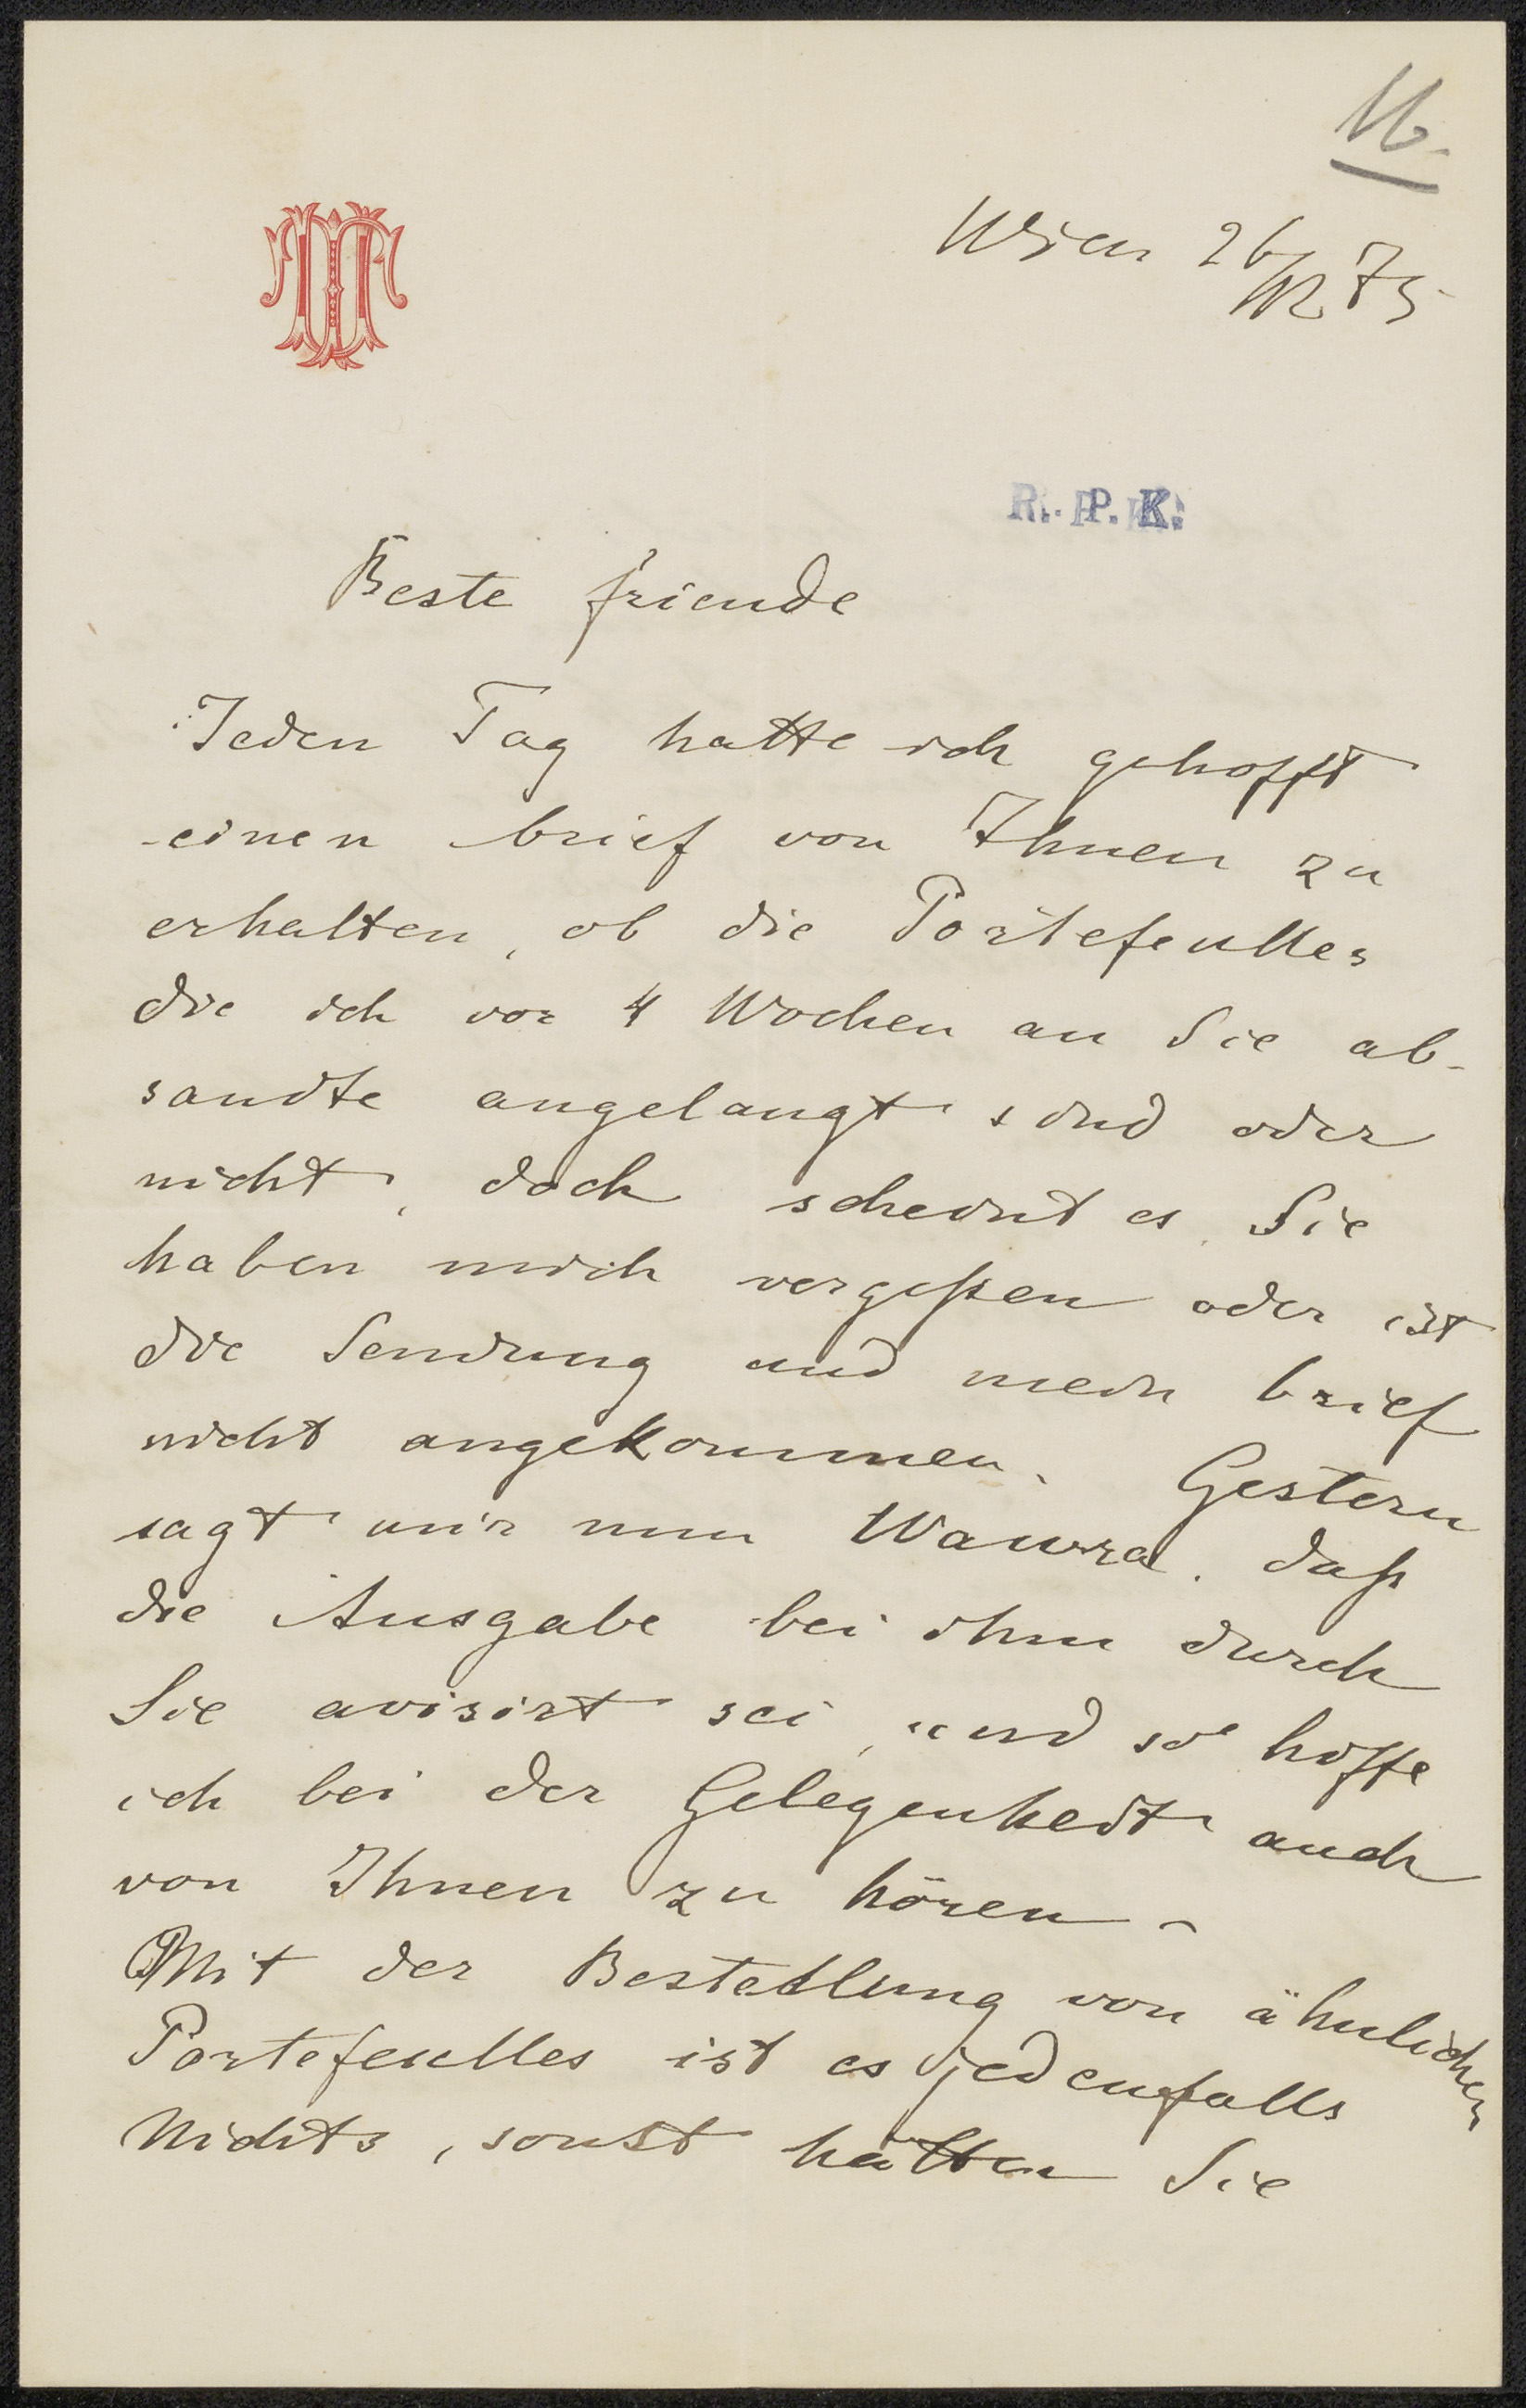 16.
Wien 26/12 75
R. P. K.
Beste friende
Jeden Tag hatte ich gehofft
einen brief von Ihnen zu
erhalten, ob die Portefeulles
die ich vor 4 Wochen an Sie ab-
sandte angelangt sind oder
nicht, doch scheint es, Sie
haben mich vergeßen oder ist
die Sendung und mein brief
nicht angekommen. Gestern
sagt mir nun Wawra. daß
die Ausgabe bei ihm durch
Sie avisirt sei, und so hoffe
ich bei der Gelegenheit auch
von Ihnen zu hören -
Mit der Bestellung von ähnlichen
Portefeulles ist es jedenfalls
Nichts, sonst hätten Sie